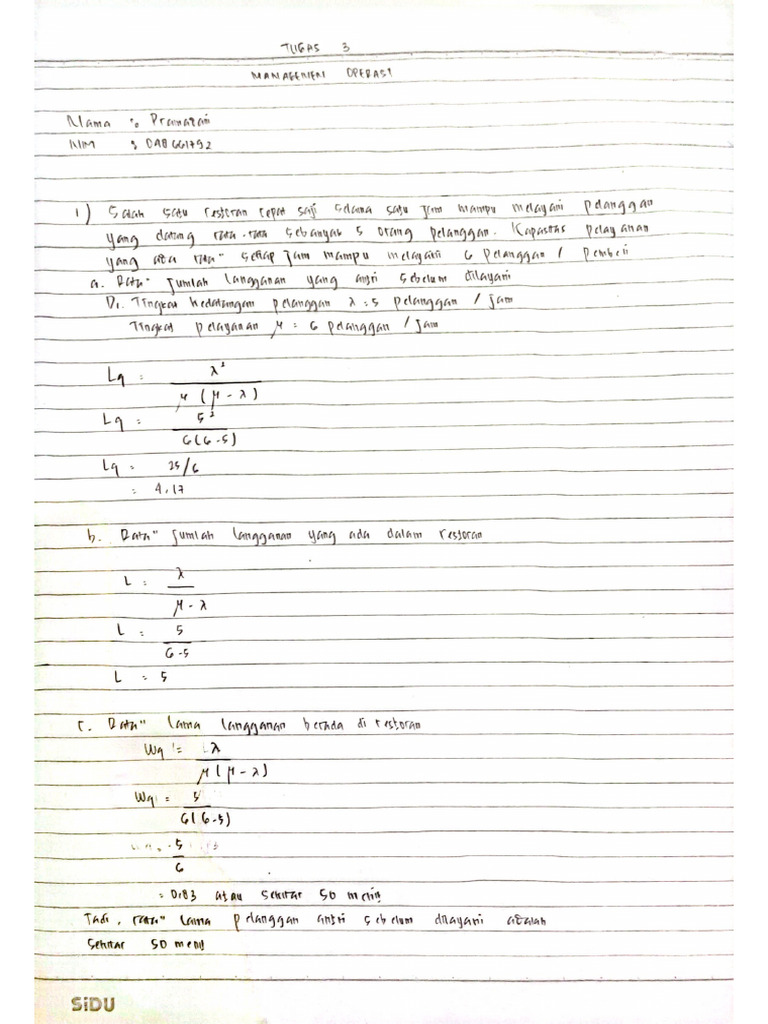 TUGAS 3
MANAGEMEN OPERASI
Nama : Pramatari
NIM : 048661792
1) Salah satu restoran cepat saji selama satu jam mampu melayani pelanggan
yang datang rata-rata sebanyak 5 orang pelanggan. Kapasitas pelayanan
yang ada rata" setiap jam mampu melayani 6 pelanggan / pembeli
a. Rata" jumlah langganan yang antri sebelum dilayani
Di. Tingkat kedatangan pelanggan λ = 5 pelanggan / jam
Tingkat pelayanan μ = 6 pelanggan / jam
Lq = λ²
μ (μ - λ)
Lq = 5²
6(6-5)
Lq = 25/6
= 4,17
b. Rata" jumlah langganan yang ada dalam restoran
L = λ
μ - λ
L = 5
6-5
L = 5
c. Rata" lama langganan berada di restoran
Wq = λ
μ (μ - λ)
Wq = 5
6(6-5)
5
6
= 0,83 atau sekitar 50 menit
Jadi, rata" lama pelanggan antri sebelum dilayani adalah
sekitar 50 menit
SiDU